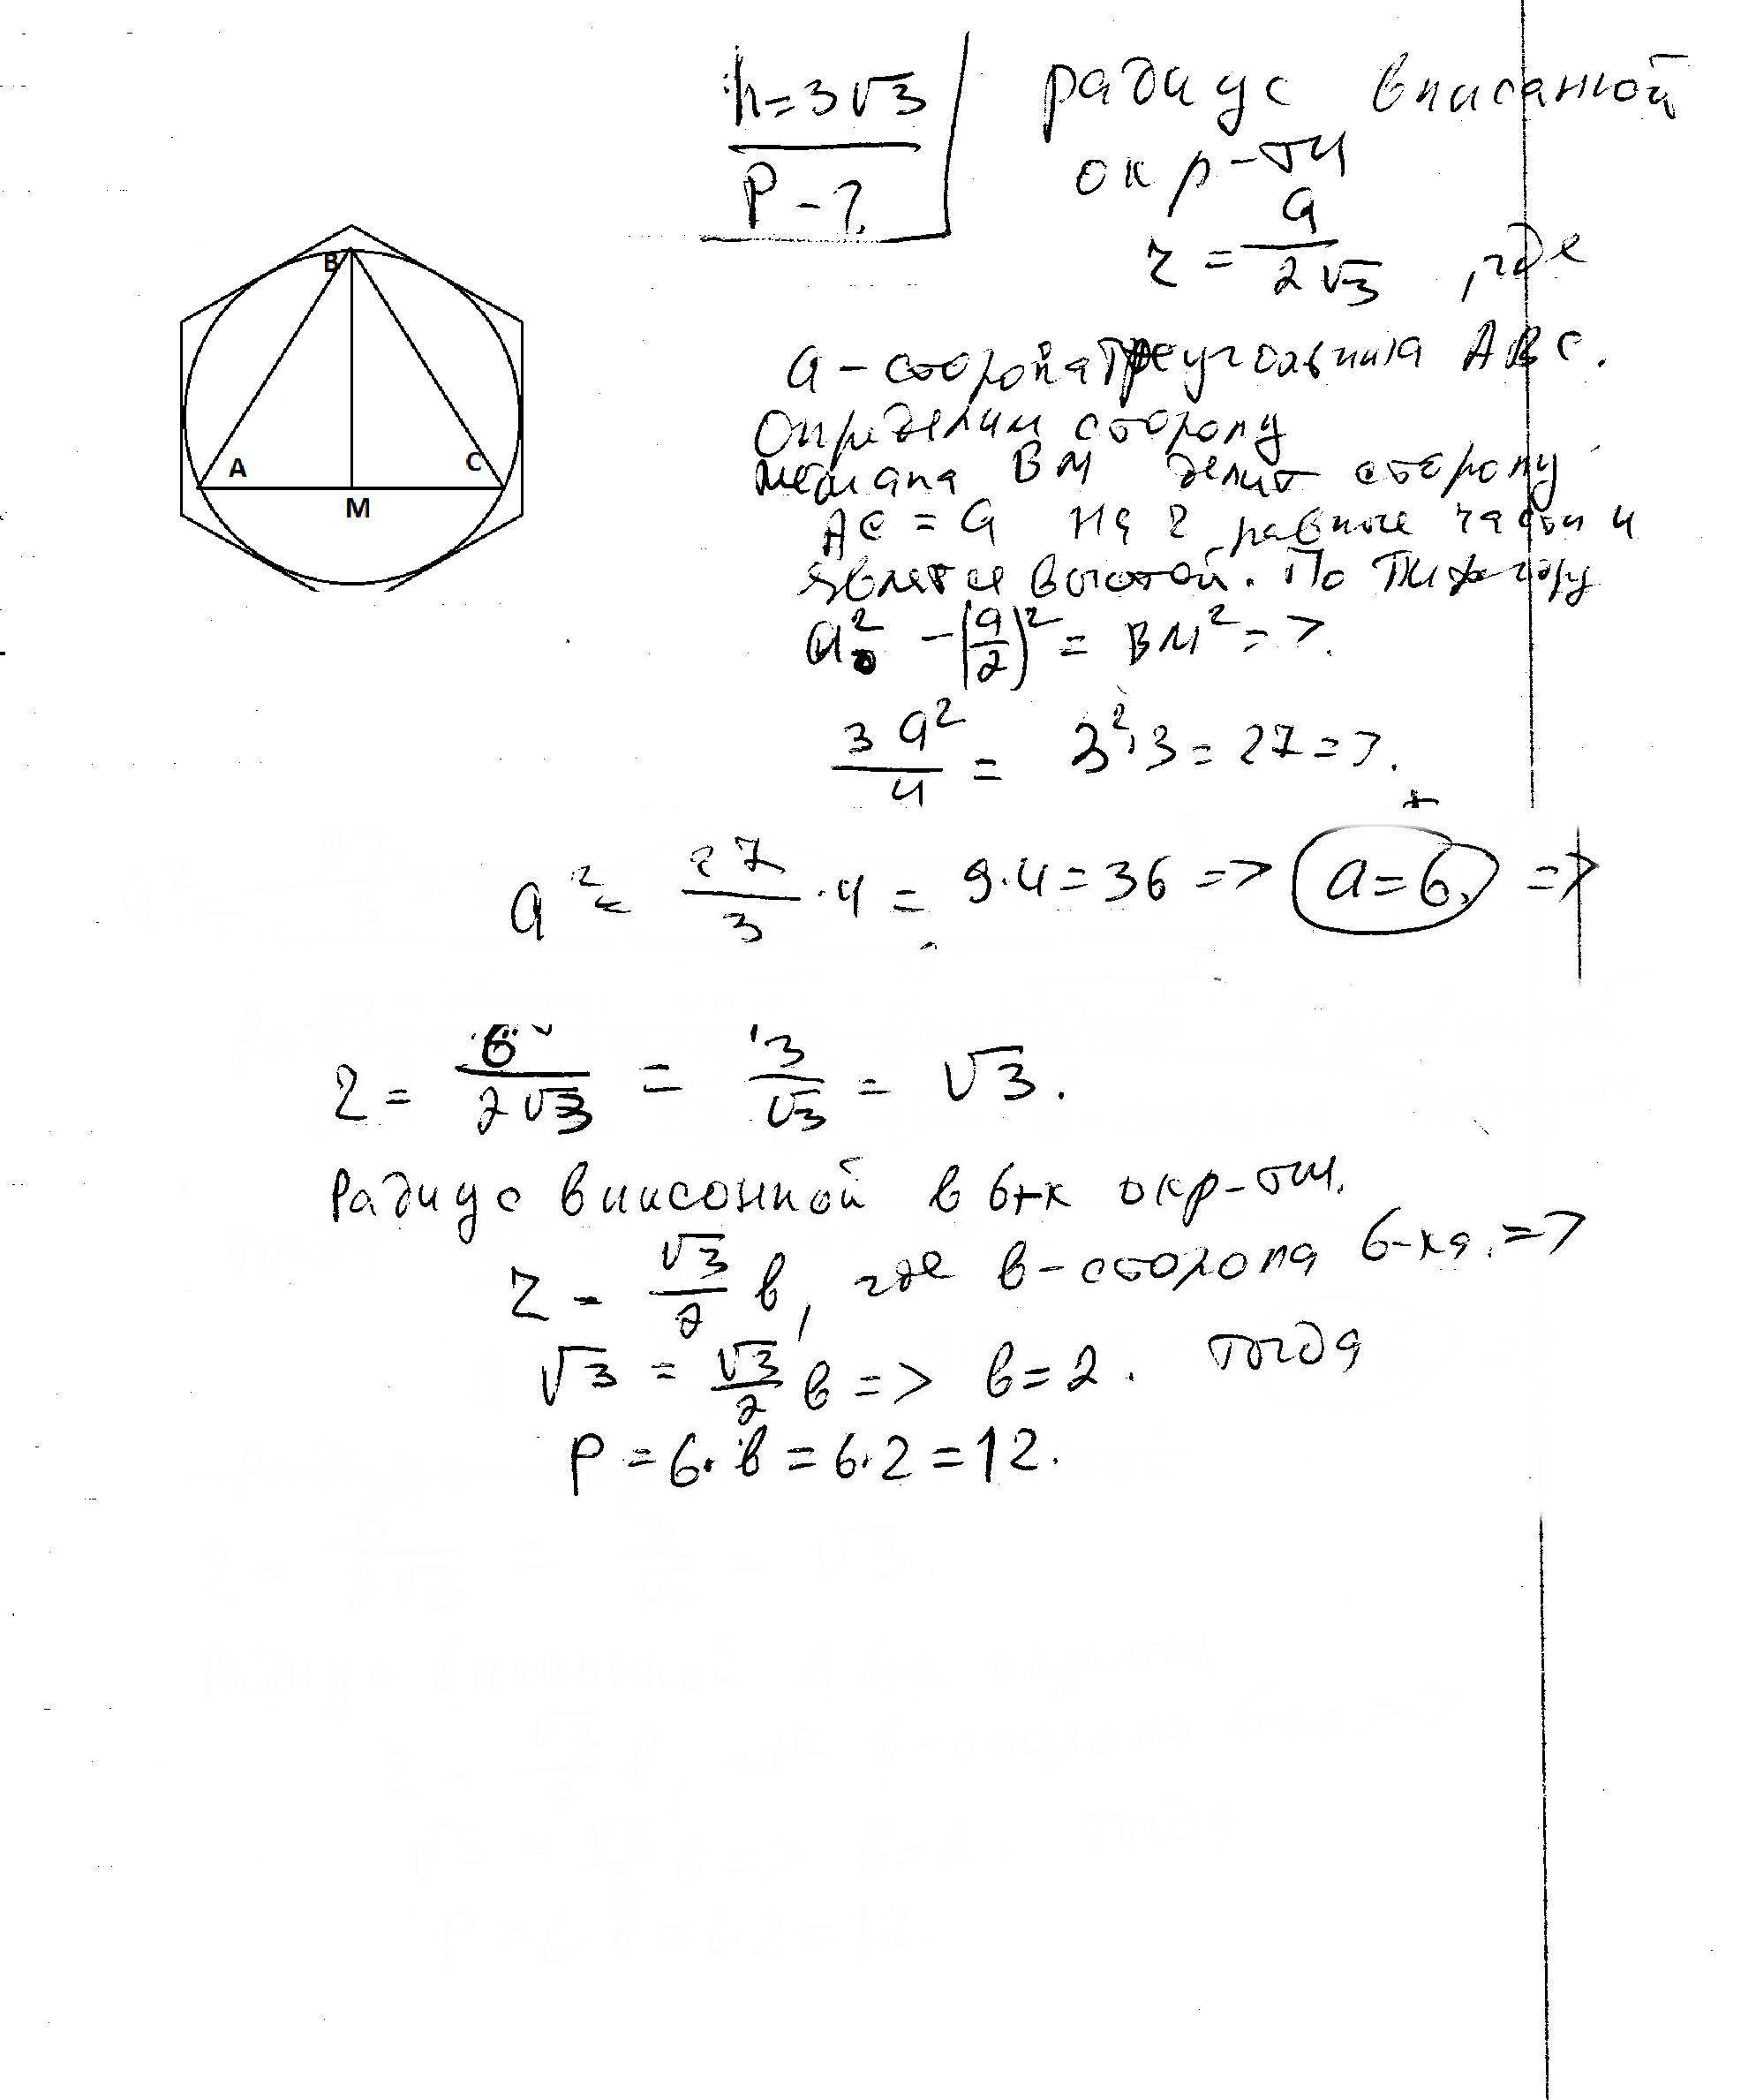 h=3√3
P-?
радиус вписанной
окр-ти
r = a/(2√3), где
a - сторона треугольника ABC.
Определим сторону
медиана BM делит сторону
AC = a на 2 равные части и
является высотой. По Пифагору
a² - (a/2)² = BM² =>
3a²/4 = 3²·3 = 27 =>.
a² = 27/3 · 4 = 9·4 = 36 => a=6, =>
r = 6/(2√3) = 3/√3 = √3.
Радиус вписонной в 6-к окр-ти.
r = √3/2 в, где в-сторона 6-ка. =>
√3 = √3/2 в => в=2. тогда
P = 6·в = 6·2 = 12.
B
A
C
M